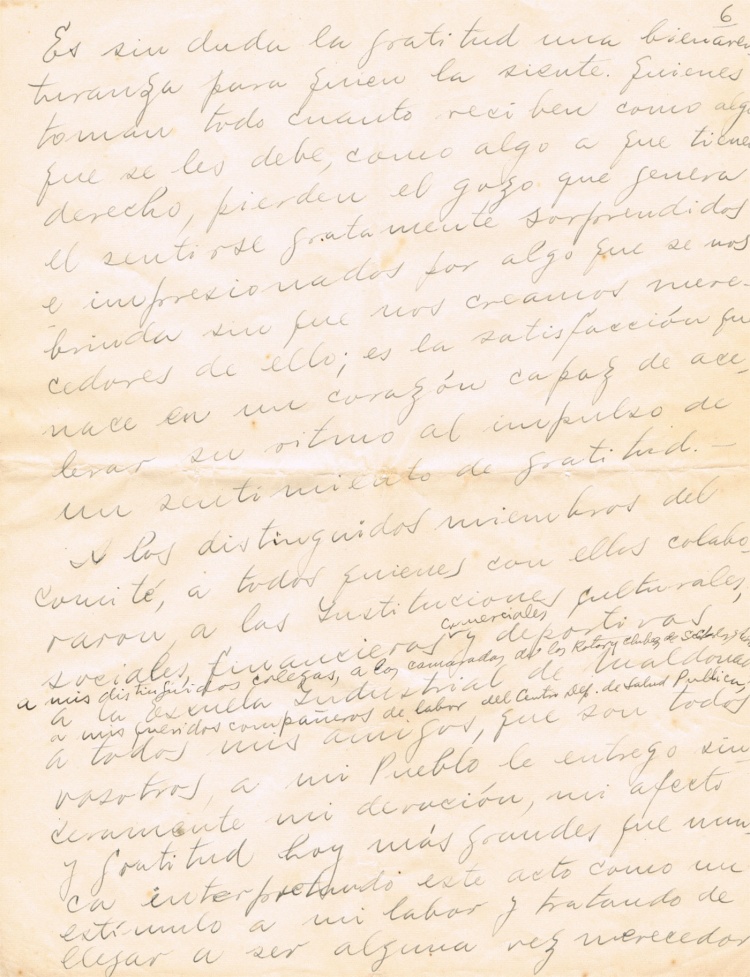 6
Es sin duda la gratitud una bienaven
turanza para quien la siente. Quienes
toman todo cuanto reciben como algo
que se les debe, como algo a que tienen
derecho, pierden el gozo que genera
el sentirse gratamente sorprendidos
e impresionados por algo que se nos
brinda sin que nos creamos mere-
cedores de ello; es la satisfacción que
nace en un corazón capaz de ace-
lerar su ritmo al impulso de
un sentimiento de gratitud. —
A los distinguidos miembros del
Comité, a todos quienes con ellos colabo-
raron, a las Instituciones culturales,
comerciales
sociales, financieras y deportivas
a mis distinguidos colegas, a los camaradas de los Rotary Clubes de
a la Escuela Industrial de Maldonado
a mis queridos compañeros de labor del Centro Dep. de Salud Pública,
a todos mis amigos, que son todos
vosotros, a mi Pueblo le entrego sin-
ceramente mi devoción, mi afecto
y gratitud hoy más grandes que nun-
ca interpretando este acto como un
estímulo a mi labor y tratando de
llegar a ser alguna vez merecedor